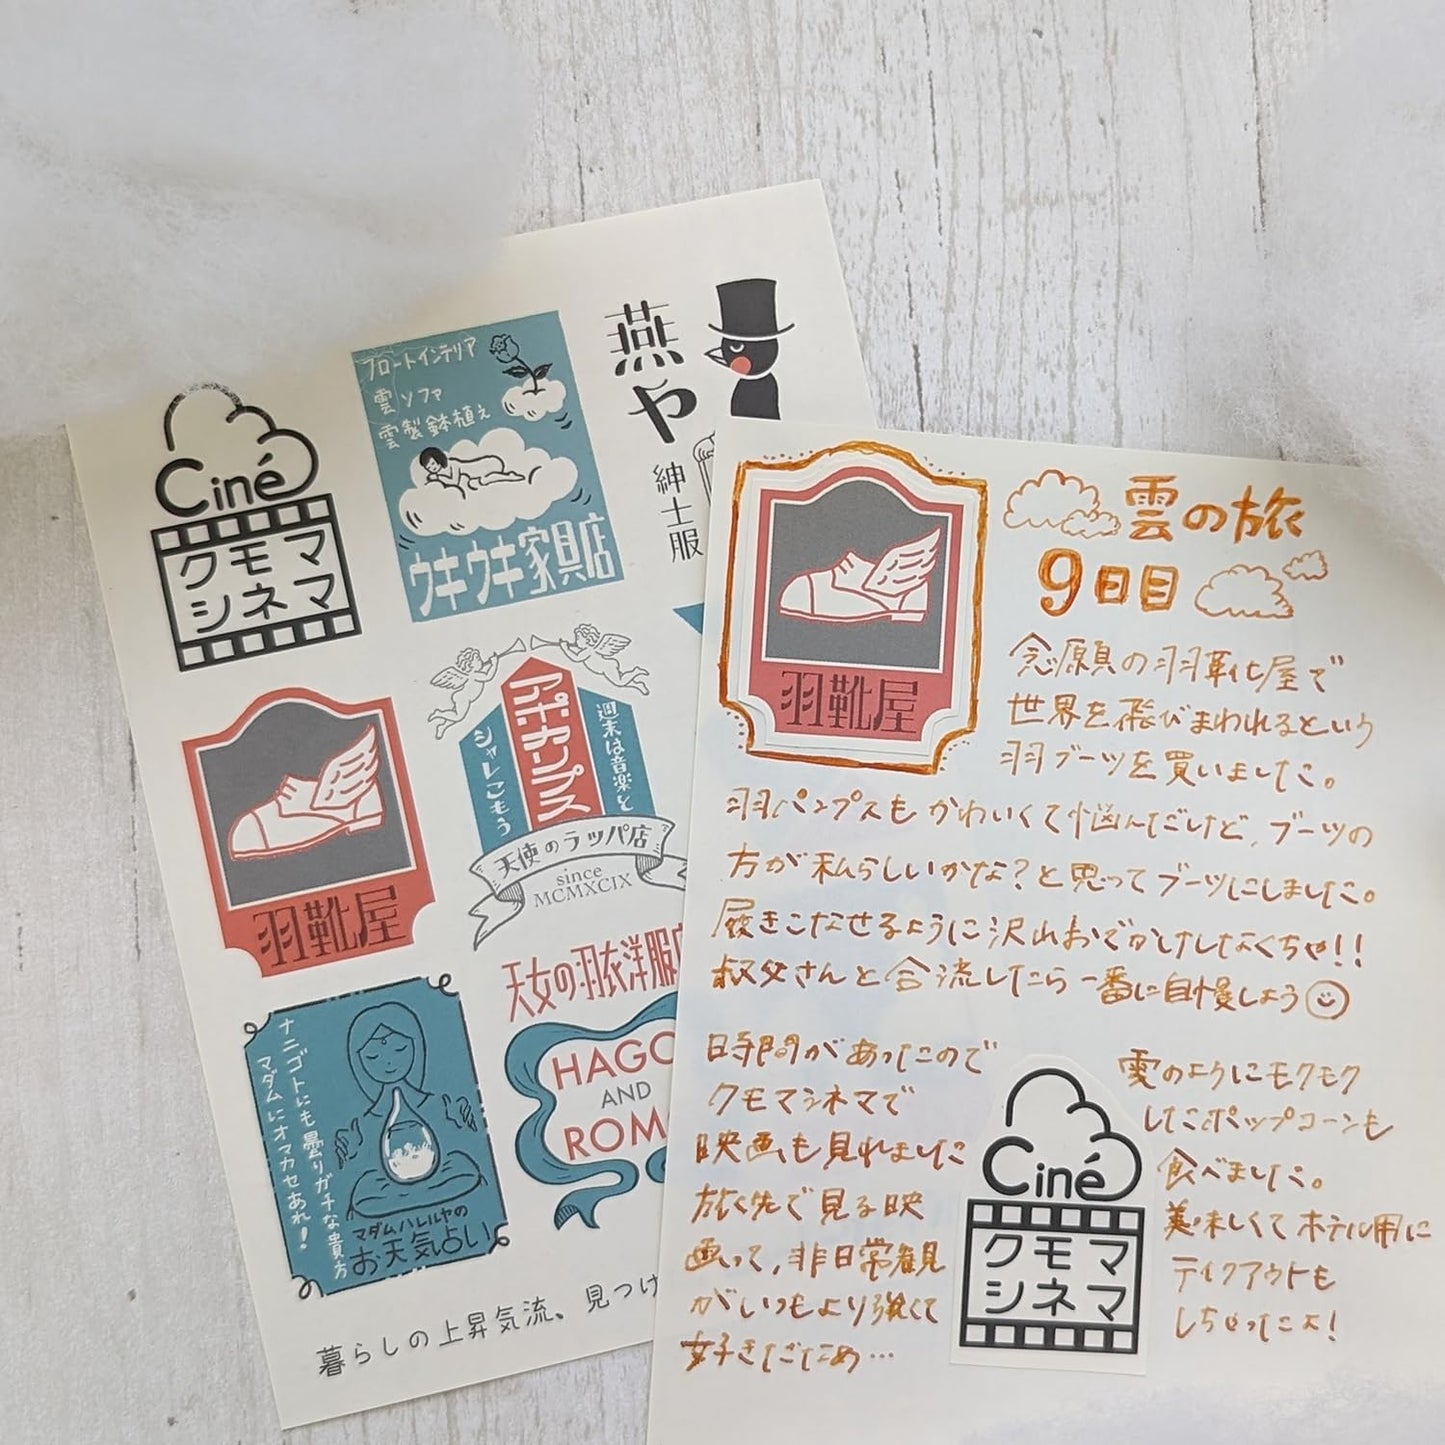 Ciné
クモマ
シネマ
フロートインテリア
雲ソファ
雲製鉢植え
ウキウキ家具店
燕や
紳士服
羽靴屋
アポカリプス
シャレこもう
週末は音楽と
天使のラッパ店
since
MCMXCIX
天女の羽衣洋服店
HAGO
AND
ROM
ナニゴトにも曇りガチな貴方
マダムにオマカセあれ!
マダムハレルヤの
お天気占い
暮らしの上昇気流、見つけ
羽靴屋
雲の旅
9日目
念願の羽靴屋で
世界を飛びまわれるという
羽ブーツを買いました。
羽パンプスもかわいくて悩んだけど、ブーツの
方が私らしいかな?と思ってブーツにしました。
履きこなせるように沢山おでかけしなくちゃ!!
叔父さんと合流したら一番に自慢しよう
時間があったので
クモマシネマで
映画も見れました
旅先で見る映
画って、非日常観
がいつもより強くて
好きだなぁ…
Ciné
クモマ
シネマ
雲のようにモクモク
したポップコーンも
食べました。
美味しくてホテル用に
テイクアウトも
しちゃったよ!